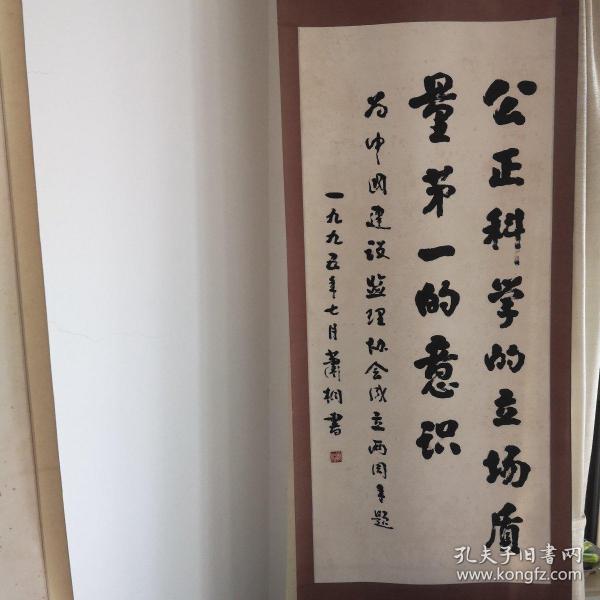 公正科学的立场质
量第一的意识
为中國建设监理协会成立两周年题
一九九五年七月萧桐書
孔夫子旧書网
www.kongfz.com